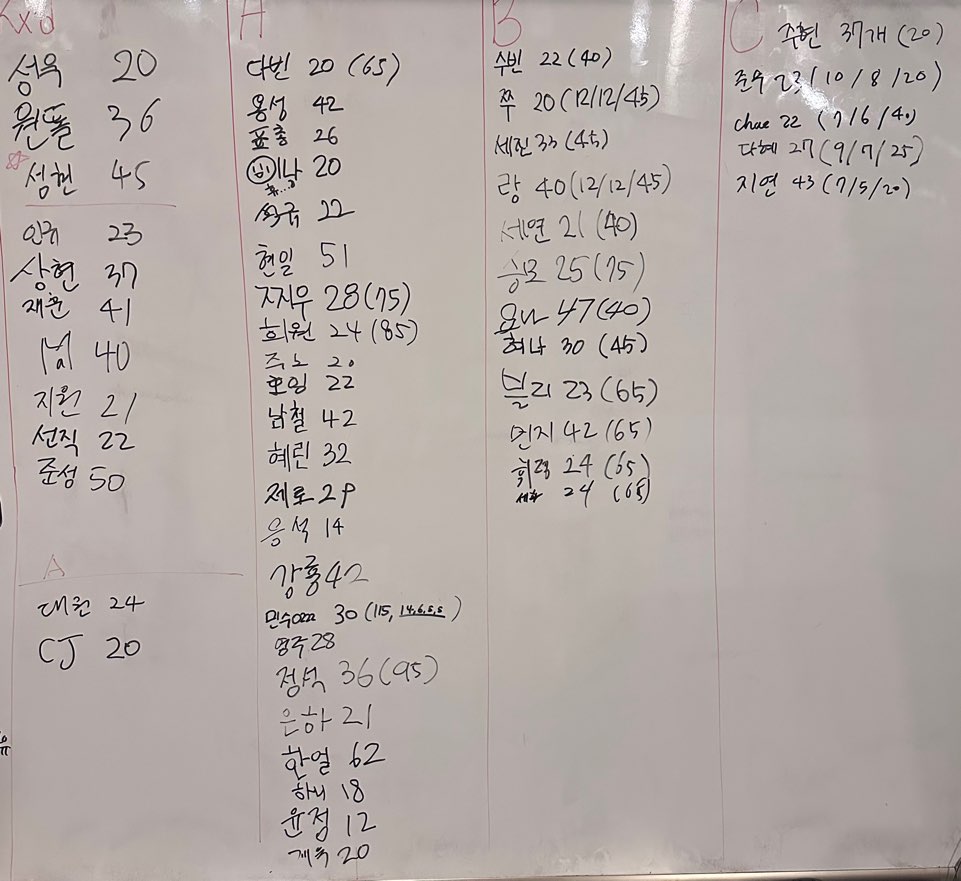 Rxd
성욱 20
원똘 36
성현 45
인규 23
상현 37
재훈 41
넘 40
지원 21
선직 22
준성 50
A
대원 24
CJ 20
A
다빈 20 (65)
용성 42
표총 26
20
석규 22
현일 51
지우 28 (75)
희원 24 (85)
주노 20
호잉 22
남철 42
혜린 32
제로 29
응석 14
강룡 42
민수 30 (115, 14,6,5,5)
영주 28
정석 36 (95)
은하 21
한얼 62
하니 18
윤정 12
20
B
수빈 22 (40)
쭈 20 (12/12/45)
세린 33 (45)
랑 40 (12/12/45)
세연 21 (40)
승모 25 (75)
요나 47 (40)
혀나 30 (45)
블리 23 (65)
민지 42 (65)
24 (65)
24 (65)
C
주현 37개 (20)
준우 23 / 10 / 8 / 20)
chae 22 (7/6/40)
다혜 27 (9/7/25)
지연 43 (7/5/20)